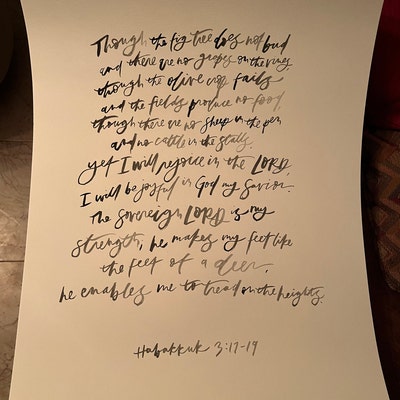 Though the fig tree does not bud
and there are no grapes on the vines,
though the olive crop fails
and the fields produce no food,
though there are no sheep in the pen
and no cattle in the stalls,
yet I will rejoice in the LORD,
I will be joyful in God my Savior.
The Sovereign LORD is my
strength; he makes my feet like
the feet of a deer,
he enables me to tread on the heights.
Habakkuk 3:17-19